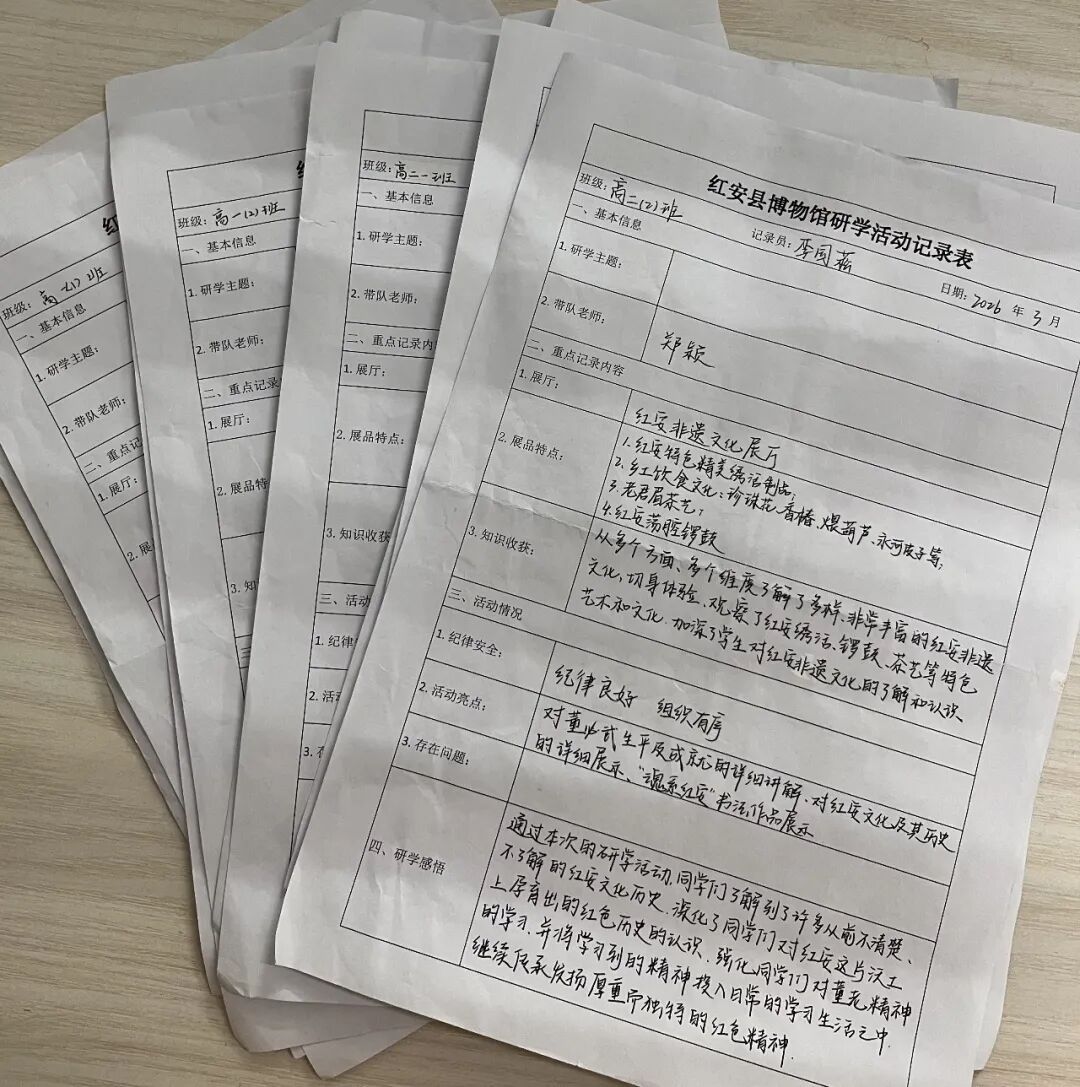 红安县博物馆研学活动记录表
班级：高二(2)班
记录员：李国蕊
日期：2026年3月
一、基本信息
1. 研学主题：
2. 带队老师：
郑颖
二、重点记录内容
1. 展厅：
红安非遗文化展厅
2. 展品特点：
1. 红安特色精美绣活制品；
2. 红饮食文化：珍珠花、香椿、煨葫芦、永河皮子等；
3. 老君眉茶艺；
4. 红安荡腔锣鼓
3. 知识收获：
从多个方面、多个维度了解了多样、非常丰富的红安非遗
文化，切身体验、观察了红安绣活、锣鼓、茶艺等特色
艺术和文化，加深了学生对红安非遗文化的了解和认识
三、活动情况
1. 纪律安全：
纪律良好 组织有序
2. 活动亮点：
对董必武生平及成就的详细讲解、对红安文化及其历史
的详细展示、“魂系红安”书法作品展示
3. 存在问题：
四、研学感悟
通过本次的研学活动，同学们了解到了许多从前不清楚、
不了解的红安文化历史，深化了同学们对红安这片沃土
上孕育出的红色历史的认识，强化同学们对董老精神
的学习，并将学习到的精神投入日常的学习生活之中，
继续传承发扬厚重而独特的红色精神.
班级：高二一班
一、基本信息
1. 研学主题：
2. 带队老师：
二、重点记录内
1. 展厅：
2. 展品特点：
3. 知识收获
三、活动
1. 纪律
2. 活动
3. 存
班级：高一(2)班
一、基本信息
1. 研学主题：
2. 带队老师：
二、重点记录
1. 展厅：
2. 展品特
3. 知
班级：高一(1)班
一、基本信息
1. 研学主题：
2. 带队老师：
二、重点
1. 展厅：
2. 展